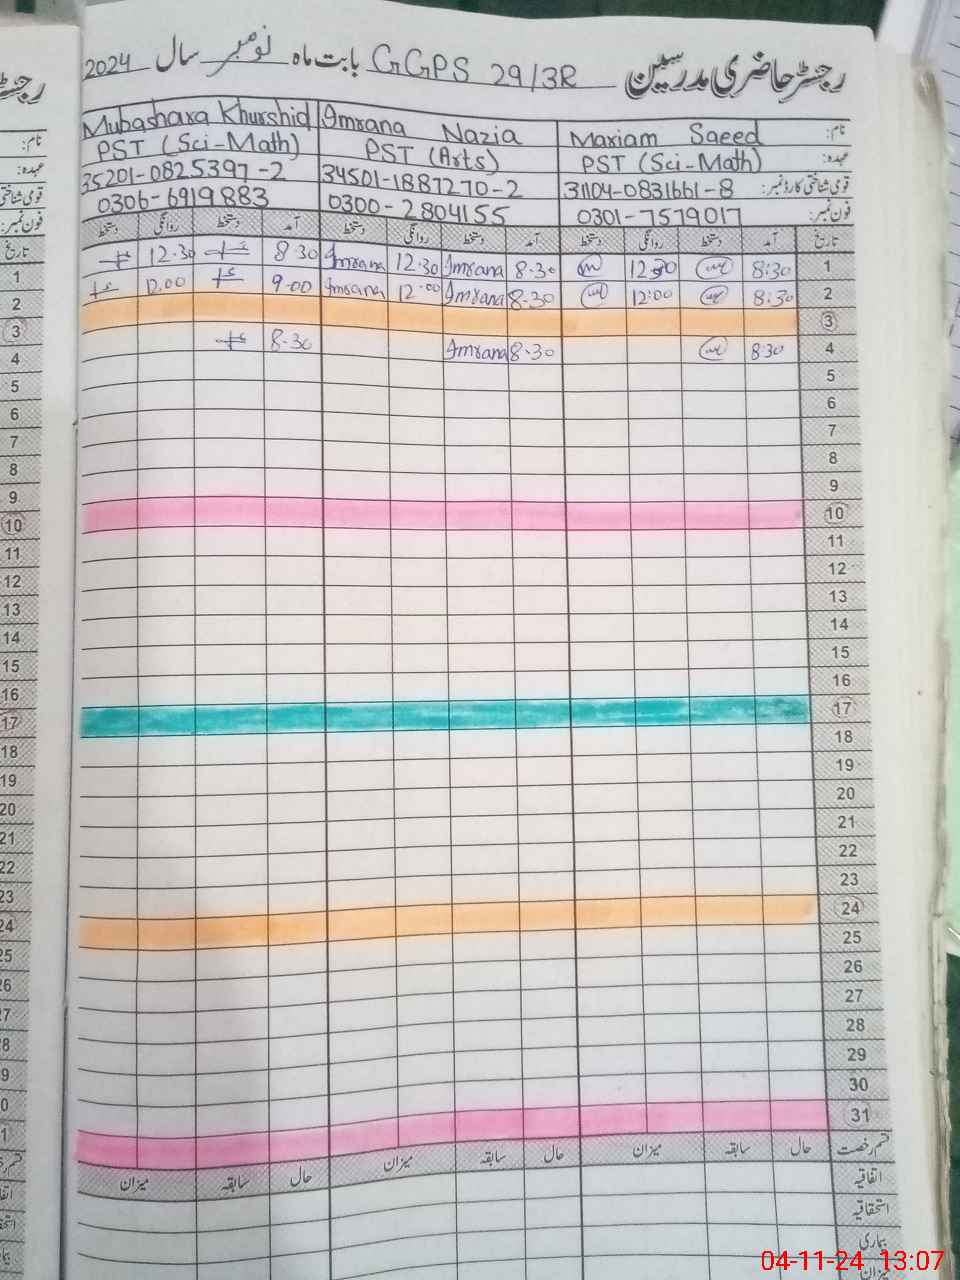 رجسٹر حاضری مدرسین GGPS 29/3R بابت ماہ نومبر سال 2024
نام: Mariam Saeed Imrana Nazia Mubashara Khurshid
عہدہ: PST (Sci-Math) PST (Arts) PST (Sci-Math)
قومی شناختی کارڈ نمبر: 31104-0831661-8 34501-1887270-2 35201-0825397-2
فون نمبر: 0301-7579017 0300-2804155 0306-6919883
تاریخ آمد دستخط روانگی دستخط آمد دستخط روانگی دستخط آمد دستخط روانگی دستخط
1 8:30 12:30 8.30 Imrana 12.30 Imrana 8.30 12.30
2 8:30 12:00 8.30 Imrana 12.00 Imrana 9.00 12.00
3
4 8.30 8.30 Imrana 8.30
5
6
7
8
9
10
11
12
13
14
15
16
17
18
19
20
21
22
23
24
25
26
27
28
29
30
31
قسم رخصت حال سابقہ میزان حال سابقہ میزان حال سابقہ میزان
اتفاقیہ
استحقاقیہ
بیماری
میزان
04-11-24 13:07